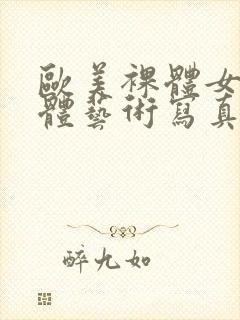 歐美裸體女
體藝術寫真
醉九如